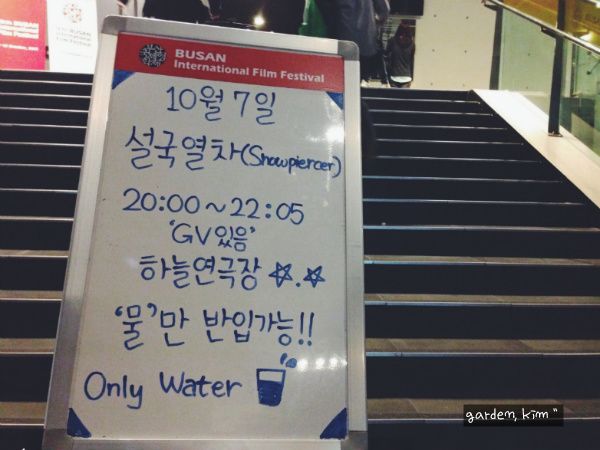 BUSAN
International Film Festival
10월 7일
설국열차(Snowpiercer)
20:00~22:05
'GV있음'
하늘연극장 ☆.☆
'물'만 반입가능!!
Only Water
garden, kim "